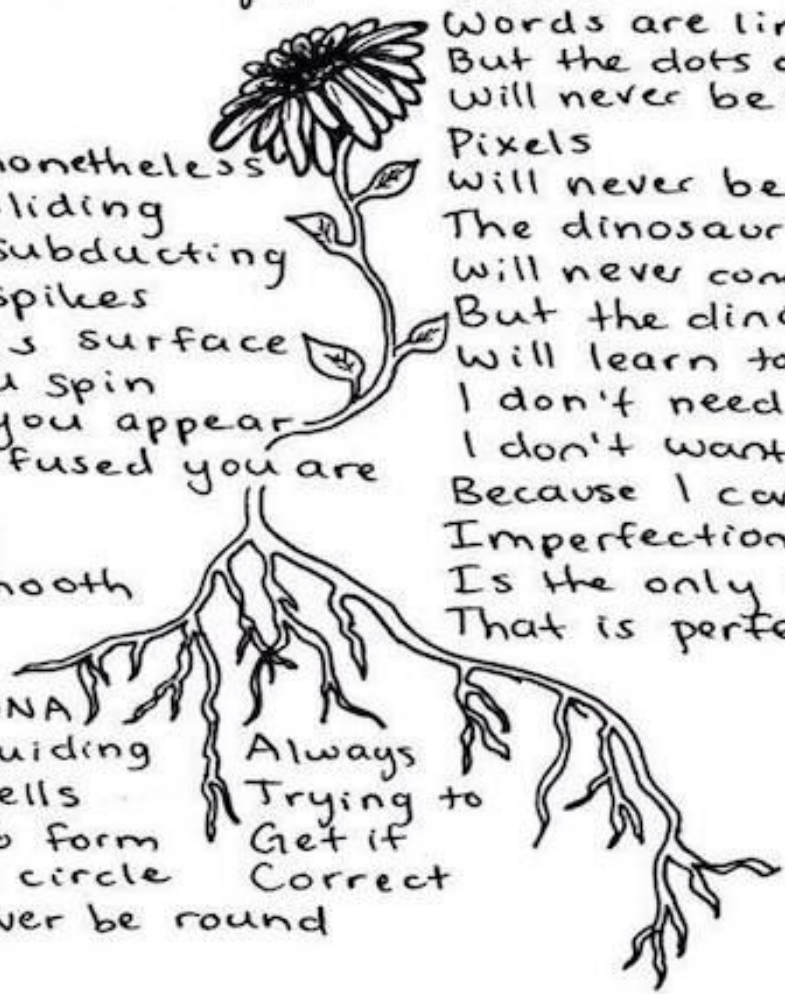 nonetheless
liding
subducting
spikes
s surface
u spin
you appear
fused you are
nooth
NA
uiding
ells
o form
circle
ver be round
Always
Trying to
Get it
Correct
Words are lin
But the dots
Will never be
Pixels
Will never be
The dinosaur
Will never com
But the dino
Will learn to
I don't need
I don't want
Because I can
Imperfection
Is the only
That is perfe